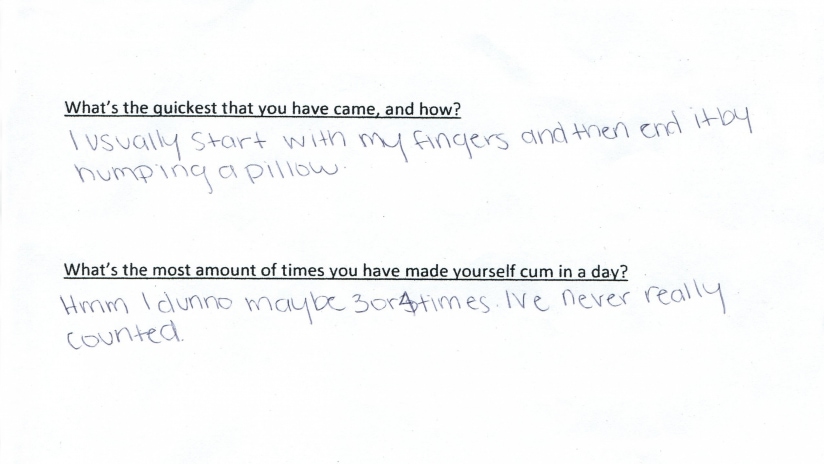 What's the quickest that you have came, and how?
I usually start with my fingers and then end it by
humping a pillow.
What's the most amount of times you have made yourself cum in a day?
Hmm I dunno maybe 3 or 4 times. I've never really
counted.